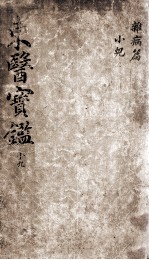 雜病篇
小兒
東醫寶鑑